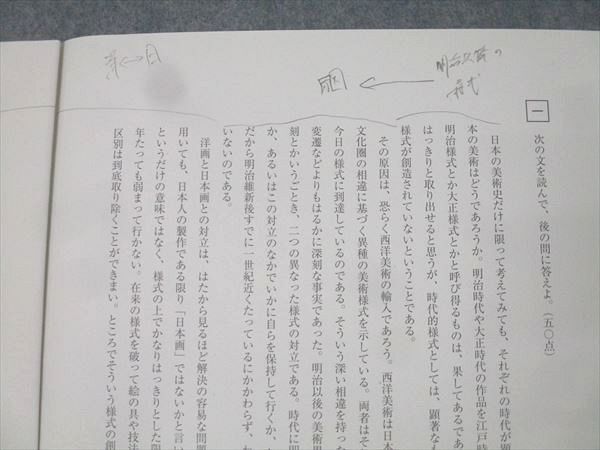 一
次の文を読んで、後の問に答えよ。(五〇点)
日本の美術史だけに限って考えてみても、それぞれの時代が顕
本の美術はどうであろうか。明治時代や大正時代の作品を江戸時
明治様式とか大正様式とかと呼び得るものは、果してあるであ
はっきりと取り出せると思うが、時代的様式としては、顕著な
様式が創造されていないということである。
その原因は、恐らく西洋美術の輸入であろう。西洋美術は日本
文化圏の相違に基づく異種の美術様式を示している。両者はそ
今日の様式に到達しているのである。そういう深い相違を持った
変遷などよりもはるかに深刻な事実であった。明治以後の美術界
刻とかいうごとき、二つの異なった様式の対立である。時代に即
か、あるいはこの対立のなかでいかに自らを保持して行くか、
だから明治維新後すでに一世紀近くたっているにかかわらず、
いないのである。
洋画と日本画との対立は、はたから見るほど解決の容易な問題
用いても、日本人の製作である限り「日本画」ではないかと言い
というだけの意味ではなく、様式の上でかなりはっきりとした限
年たっても弱まって行かない。在来の様式を破って絵の具や技法
区別は到底取り除くことができまい。ところでそういう様式の創
明治以降の
様式
←